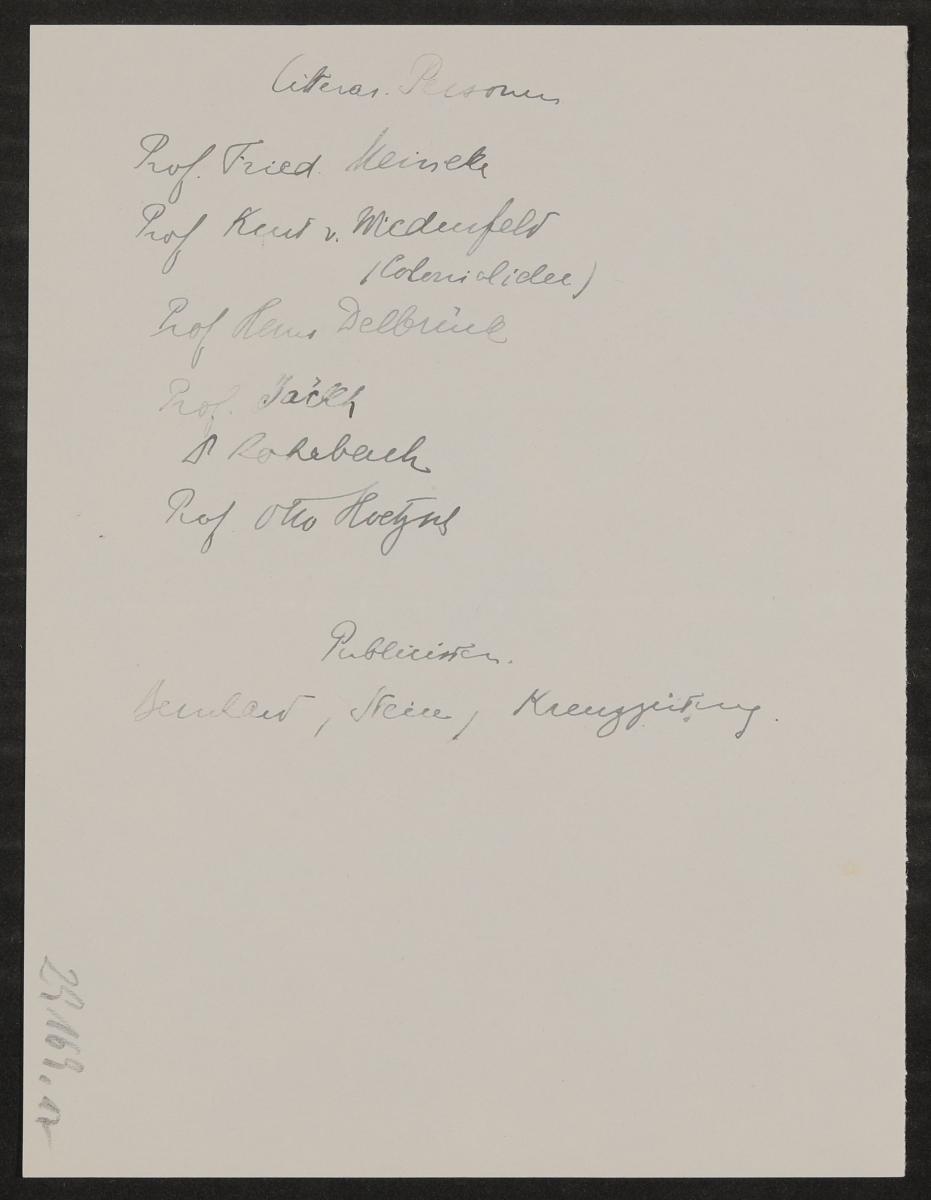 Litterar. Personen
Prof. Fried. Meineke
Prof Kurt v. Wiedenfeld
(Colonialidee)
Prof Hans Delbrück
Prof. Jäckh
Dr Rohrbach
Prof Otto Hoetzsch
Publicisten.
Bernhard, Stein, Kreuzzeitung.